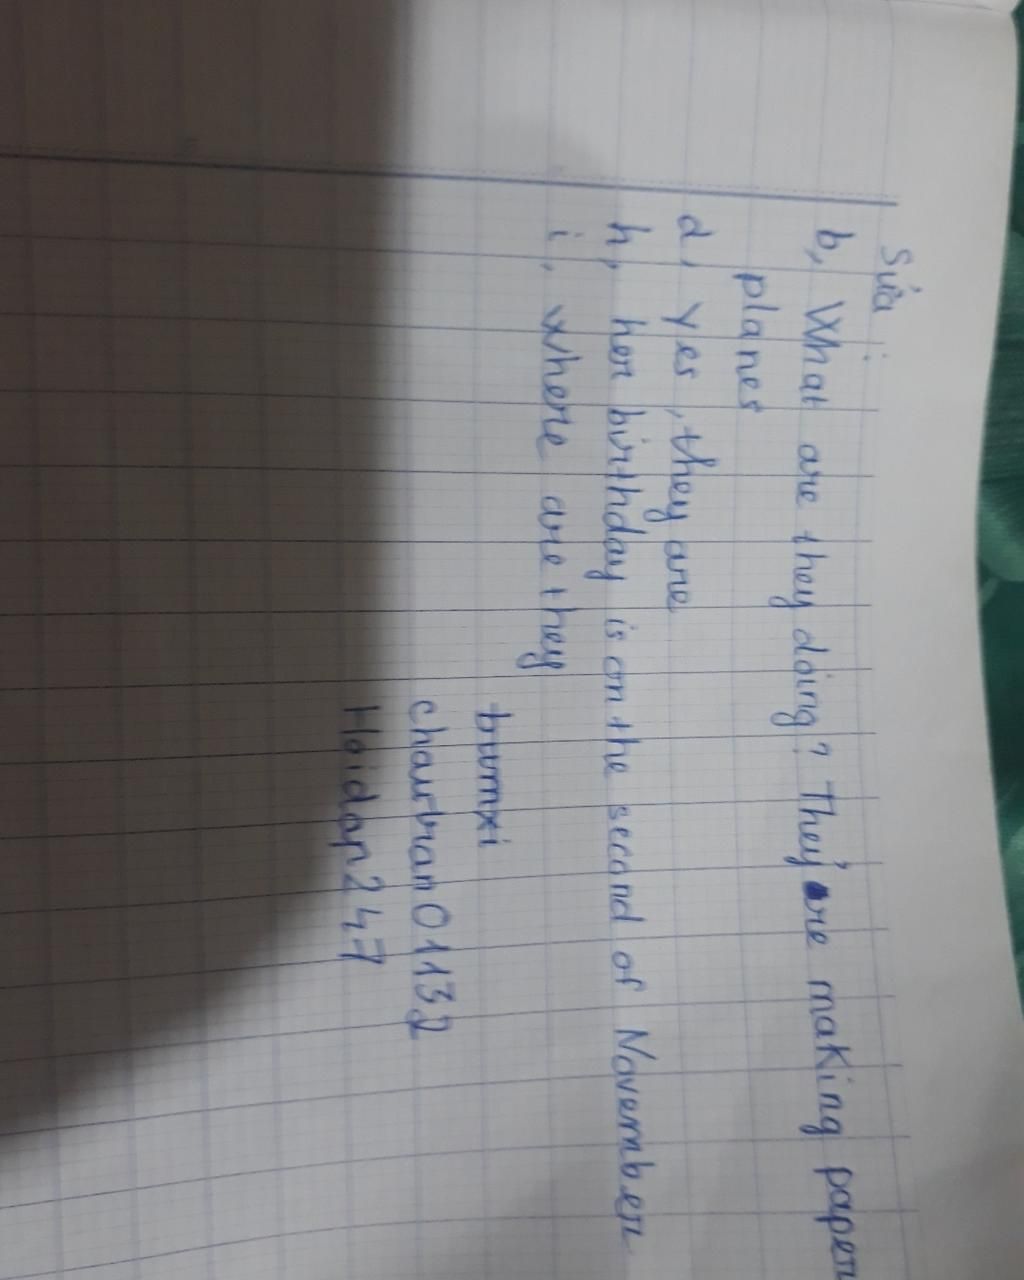 Sửa
b, What are they doing? They're making paper
planes
d, Yes, they are
h, her birthday is on the second of November
i, where are they
chautran01132
Hoidap247